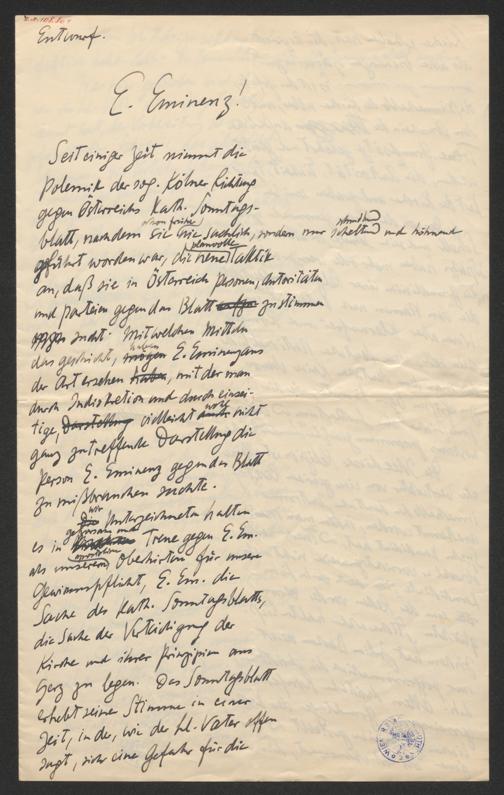 Entwurf.
E. Eminenz!
Seit einiger Zeit nimmt die
Polemik der sog. Kölner Richtung
gegen Österreichs Kath. Sonntags-
blatt, nachdem sie schon früher nie sachlich, sondern nur scheltend und höhnend
geführt worden war, die planvolle neue Taktik
an, daß sie in Österreich Personen, Autoritäten
und Parteien gegen das Blatt zu stimmen
sucht. Mit welchen Mitteln
das geschieht, haben E. Eminenz aus
der Art ersehen, mit der man
durch Indiskretion und durch einsei-
tige, vielleicht wohl nicht
ganz zutreffende Darstellung die
Person E. Eminenz gegen das Blatt
zu mißbrauchen suchte.
Wir Unterzeichneten halten
es in Treue gegen E. Em.
als unseren Oberhirten für unsere
Gewissenspflicht, E. Em. die
Sache des Kath. Sonntagsblatts,
die Sache der Verteidigung der
Kirche und ihrer Prinzipien ans
Herz zu legen. Das Sonntagsblatt
erhebt seine Stimme in einer
Zeit, in der, wie der hl. Vater offen
sagt, eine Gefahr für die